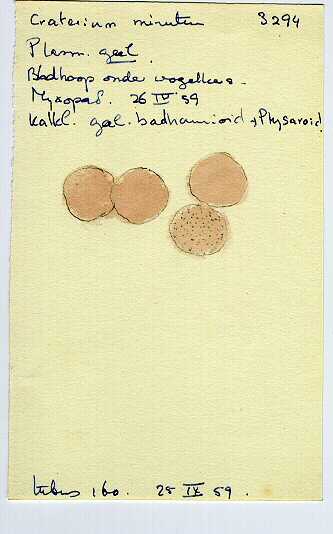 Craterium minutum 3294
Plasm. geel.
Bladhoop onder vogelkers.
Myxopad. 26 IV 59
Kalkl. geel. badhamioid + Physaroid.
tubus 160. 25 IX 59.